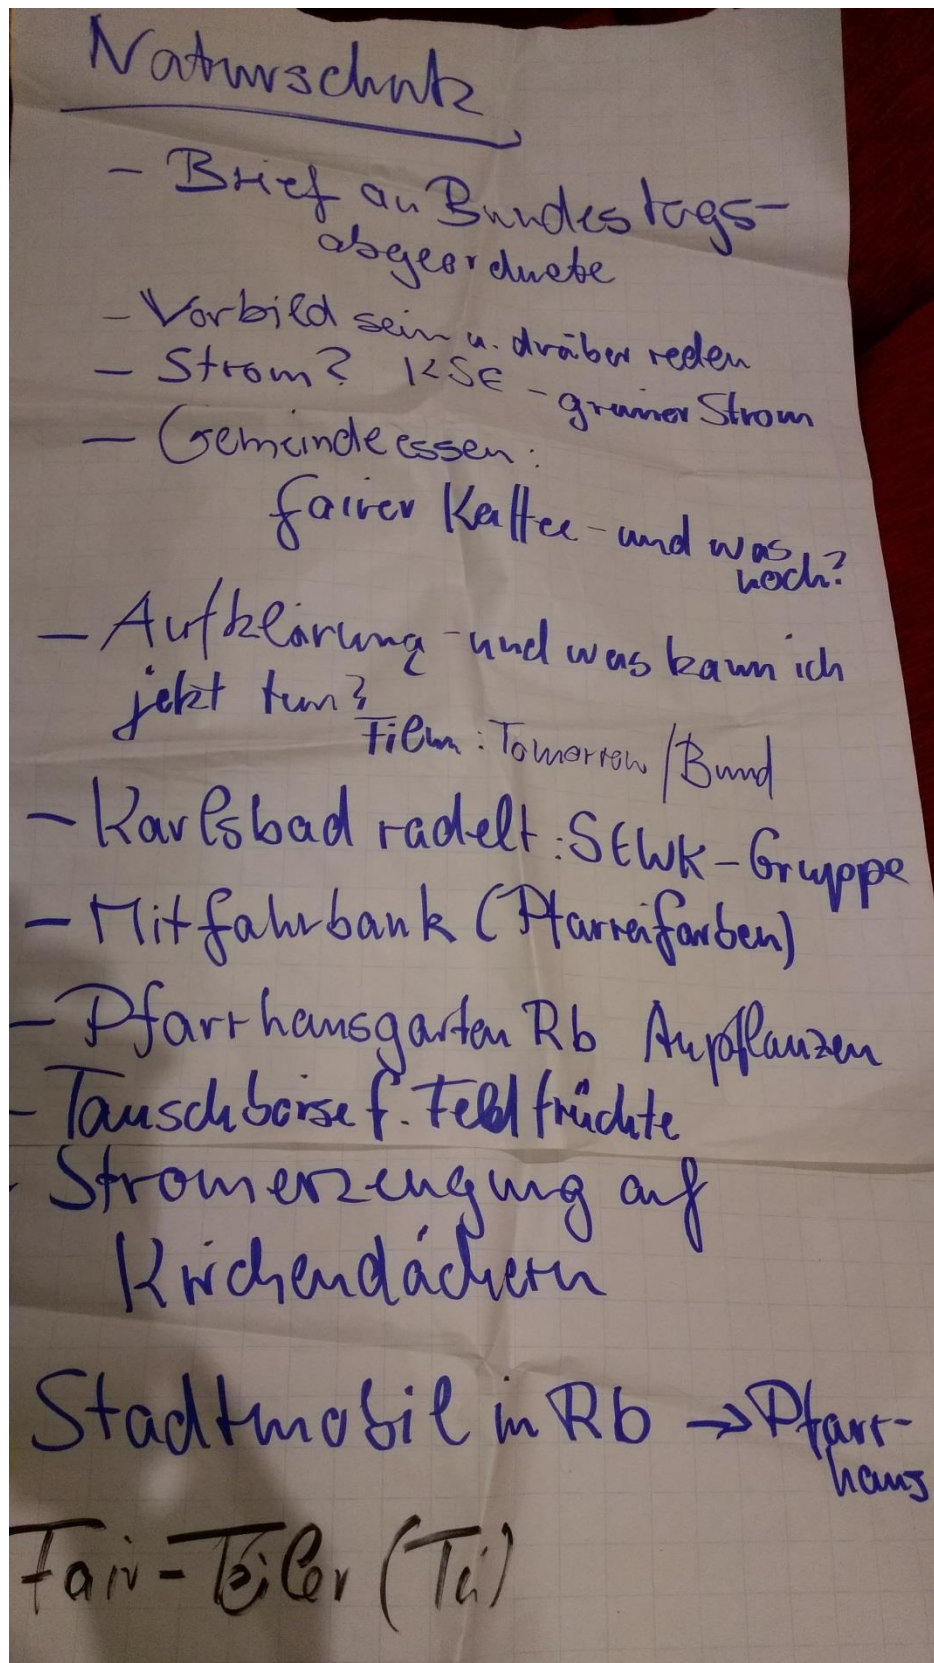 Naturschutz
- Brief an Bundestags-
abgeordnete
- Vorbild sein u. drüber reden
- Strom? KSE - grüner Strom
- Gemeindeessen:
fairer Kaffee - und was
noch?
- Aufklärung - und was kann ich
jetzt tun?
Film: Tomorrow / Bund
- Karlsbad radelt: SEWK-Gruppe
- Mitfahrbank (Pfarreifarben)
- Pfarrhausgarten Rb Anpflanzen
- Tauschbörse f. Feldfrüchte
- Stromerzeugung auf
Kirchendächern
Stadtmobil in Rb → Pfarr-
haus
Fair-Teiler